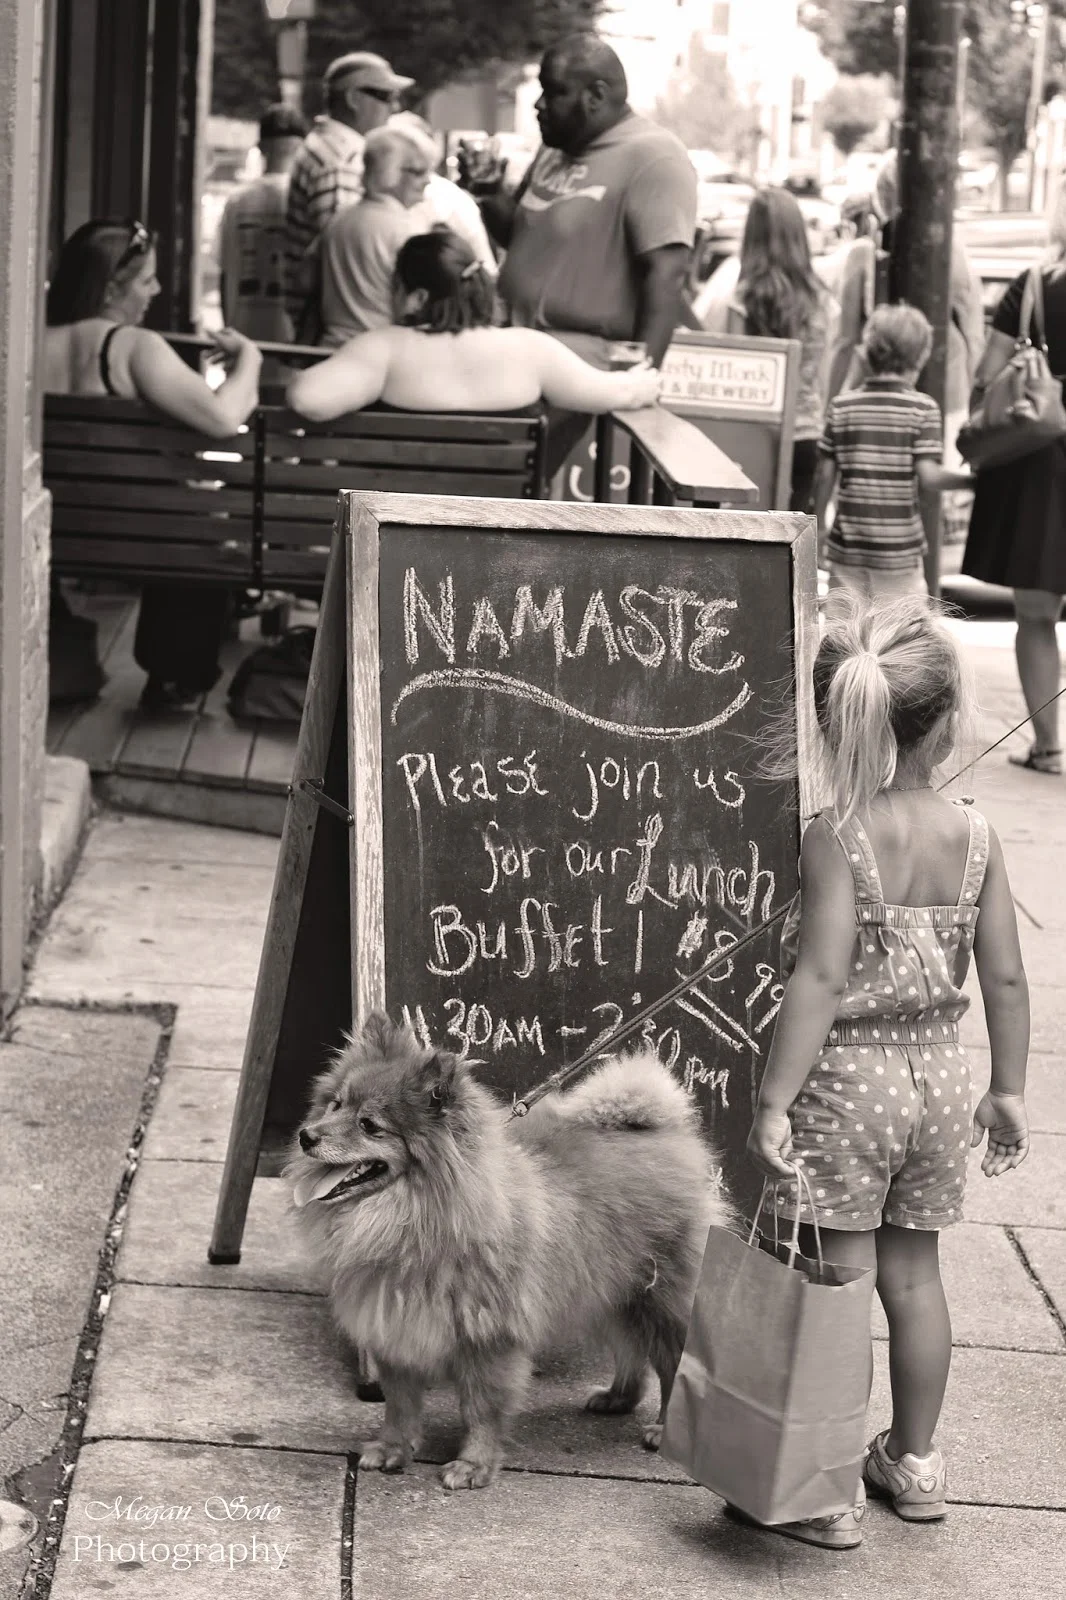 usty Monk
& BREWERY
NAMASTE
Please join us
for our Lunch
Buffet | $8.99
11:30AM - 2:30pm
Megan Soto
Photography